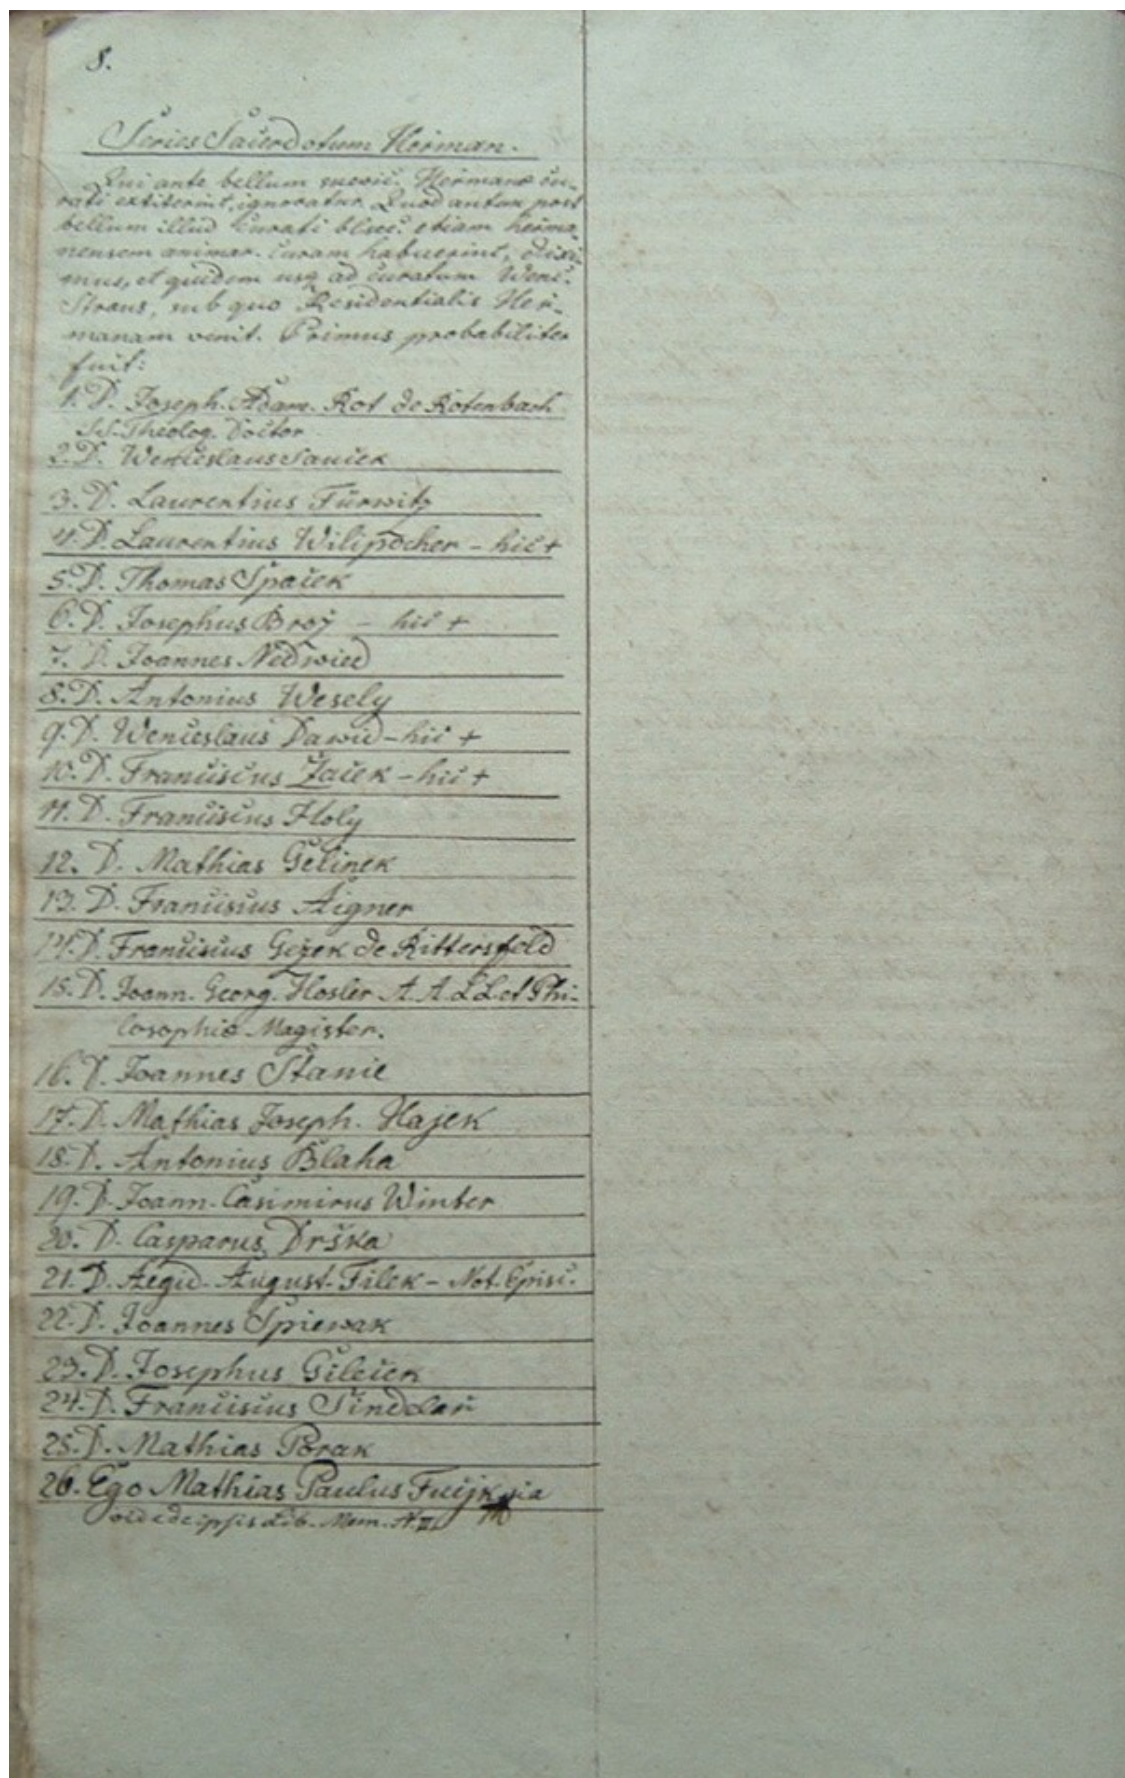 8.
Series Sacerdotum Herman.
Qui ante bellum suecic. Hermanæ cu-
rati extiterint, ignoratur. Quod autem post
bellum illud Curati blsic. etiam herma-
nensem animar. Curam habuerint, dixi-
mus, et quidem usq ad Curatum Wenc.
Straus, sub quo Residentialis Her-
manam venit. Primus probabiliter
fuit:
1. D. Joseph. Adam. Rot de Rotenbach
SS. Theolog. Doctor
2. D. Wenceslaus Saucek
3. D. Laurentius Fürwitz
4. D. Laurentius Wilipocher - hic +
5. D. Thomas Spacek
6. D. Josephus Broj - hic +
7. D. Joannes Nedwied
8. D. Antonius Wesely
9. D. Wenceslaus Dawid - hic +
10. D. Franciscus Zacek - hic +
11. D. Franciscus Holy
12. D. Mathias Gelinek
13. D. Franciscus Aigner
14. D. Franciscus Gezek de Rittersfeld
15. D. Joann. Georg. Hosler A. A. L L. et Phi-
losophiæ Magister.
16. D. Joannes Stanie
17. D. Mathias Joseph. Hajek
18. D. Antonius Blaha
19. D. Joann. Casimirus Winter
20. D. Casparus Drška
21. D. Aegid. August. Filek - Not. Episc.
22. D. Joannes Spiewak
23. D. Josephus Gilecek
24. D. Franciscus Sindlar
25. D. Mathias Porak
26. Ego Mathias Paulus Fucjk
vide de ipsis Lib. Mem. N. III